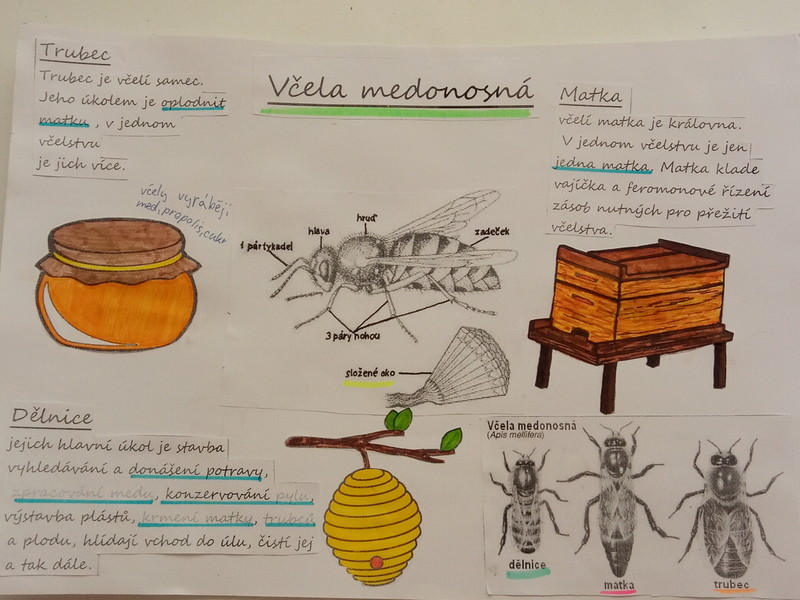 Trubec
Trubec je včelí samec.
Jeho úkolem je oplodnit
matku , v jednom
včelstvu
je jich více.
Včela medonosná
Matka
včelí matka je královna.
V jednom včelstvu je jen
jedna matka. Matka klade
vajíčka a feromonové řízení
zásob nutných pro přežití
včelstva.
včely vyrábějí
med, propolis, cukr
1 pár tykadel
hlava
hruď
zadeček
3 páry nohou
složené oko
Dělnice
jejich hlavní úkol je stavba
vyhledávání a donášení potravy,
zpracování medu, konzervování pylu,
výstavba plástů, krmení matky, trubců
a plodu, hlídají vchod do úlu, čistí jej
a tak dále.
Včela medonosná
(Apis mellifera)
dělnice
matka
trubec